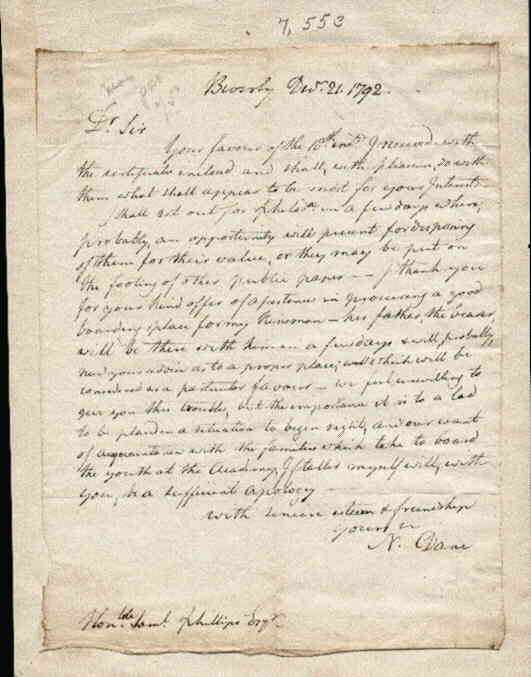 7,553
Beverly Decr. 21. 1792.
Dr. Sir
Your favour of the 18th inst. I received with
the certificates enclosed and shall, with pleasure, do with
them what shall appear to be most for your Interest
I shall set out for Philaa. in a few days where,
probably, an opportunity will present for disposing
of them for their value, or they may be put on
the footing of other public paper — I thank you
for your kind offer of assistance in procuring a good
boarding place for my Kinsman — his father, the bearer,
will be there with him in a few days & will probably
need your advice as to a proper place; which will be
considered as a particular favour — we feel unwilling to
give you this trouble, but the importance it is to a lad
to be placed in a situation to begin right, and our want
of acquaintance with the families which take to board
the youth at the Academy, I flatter myself will, with
you, be a sufficient apology
with sincere esteem & friendship
yours
N. Dane
Honble Saml. Phillips Esqr.